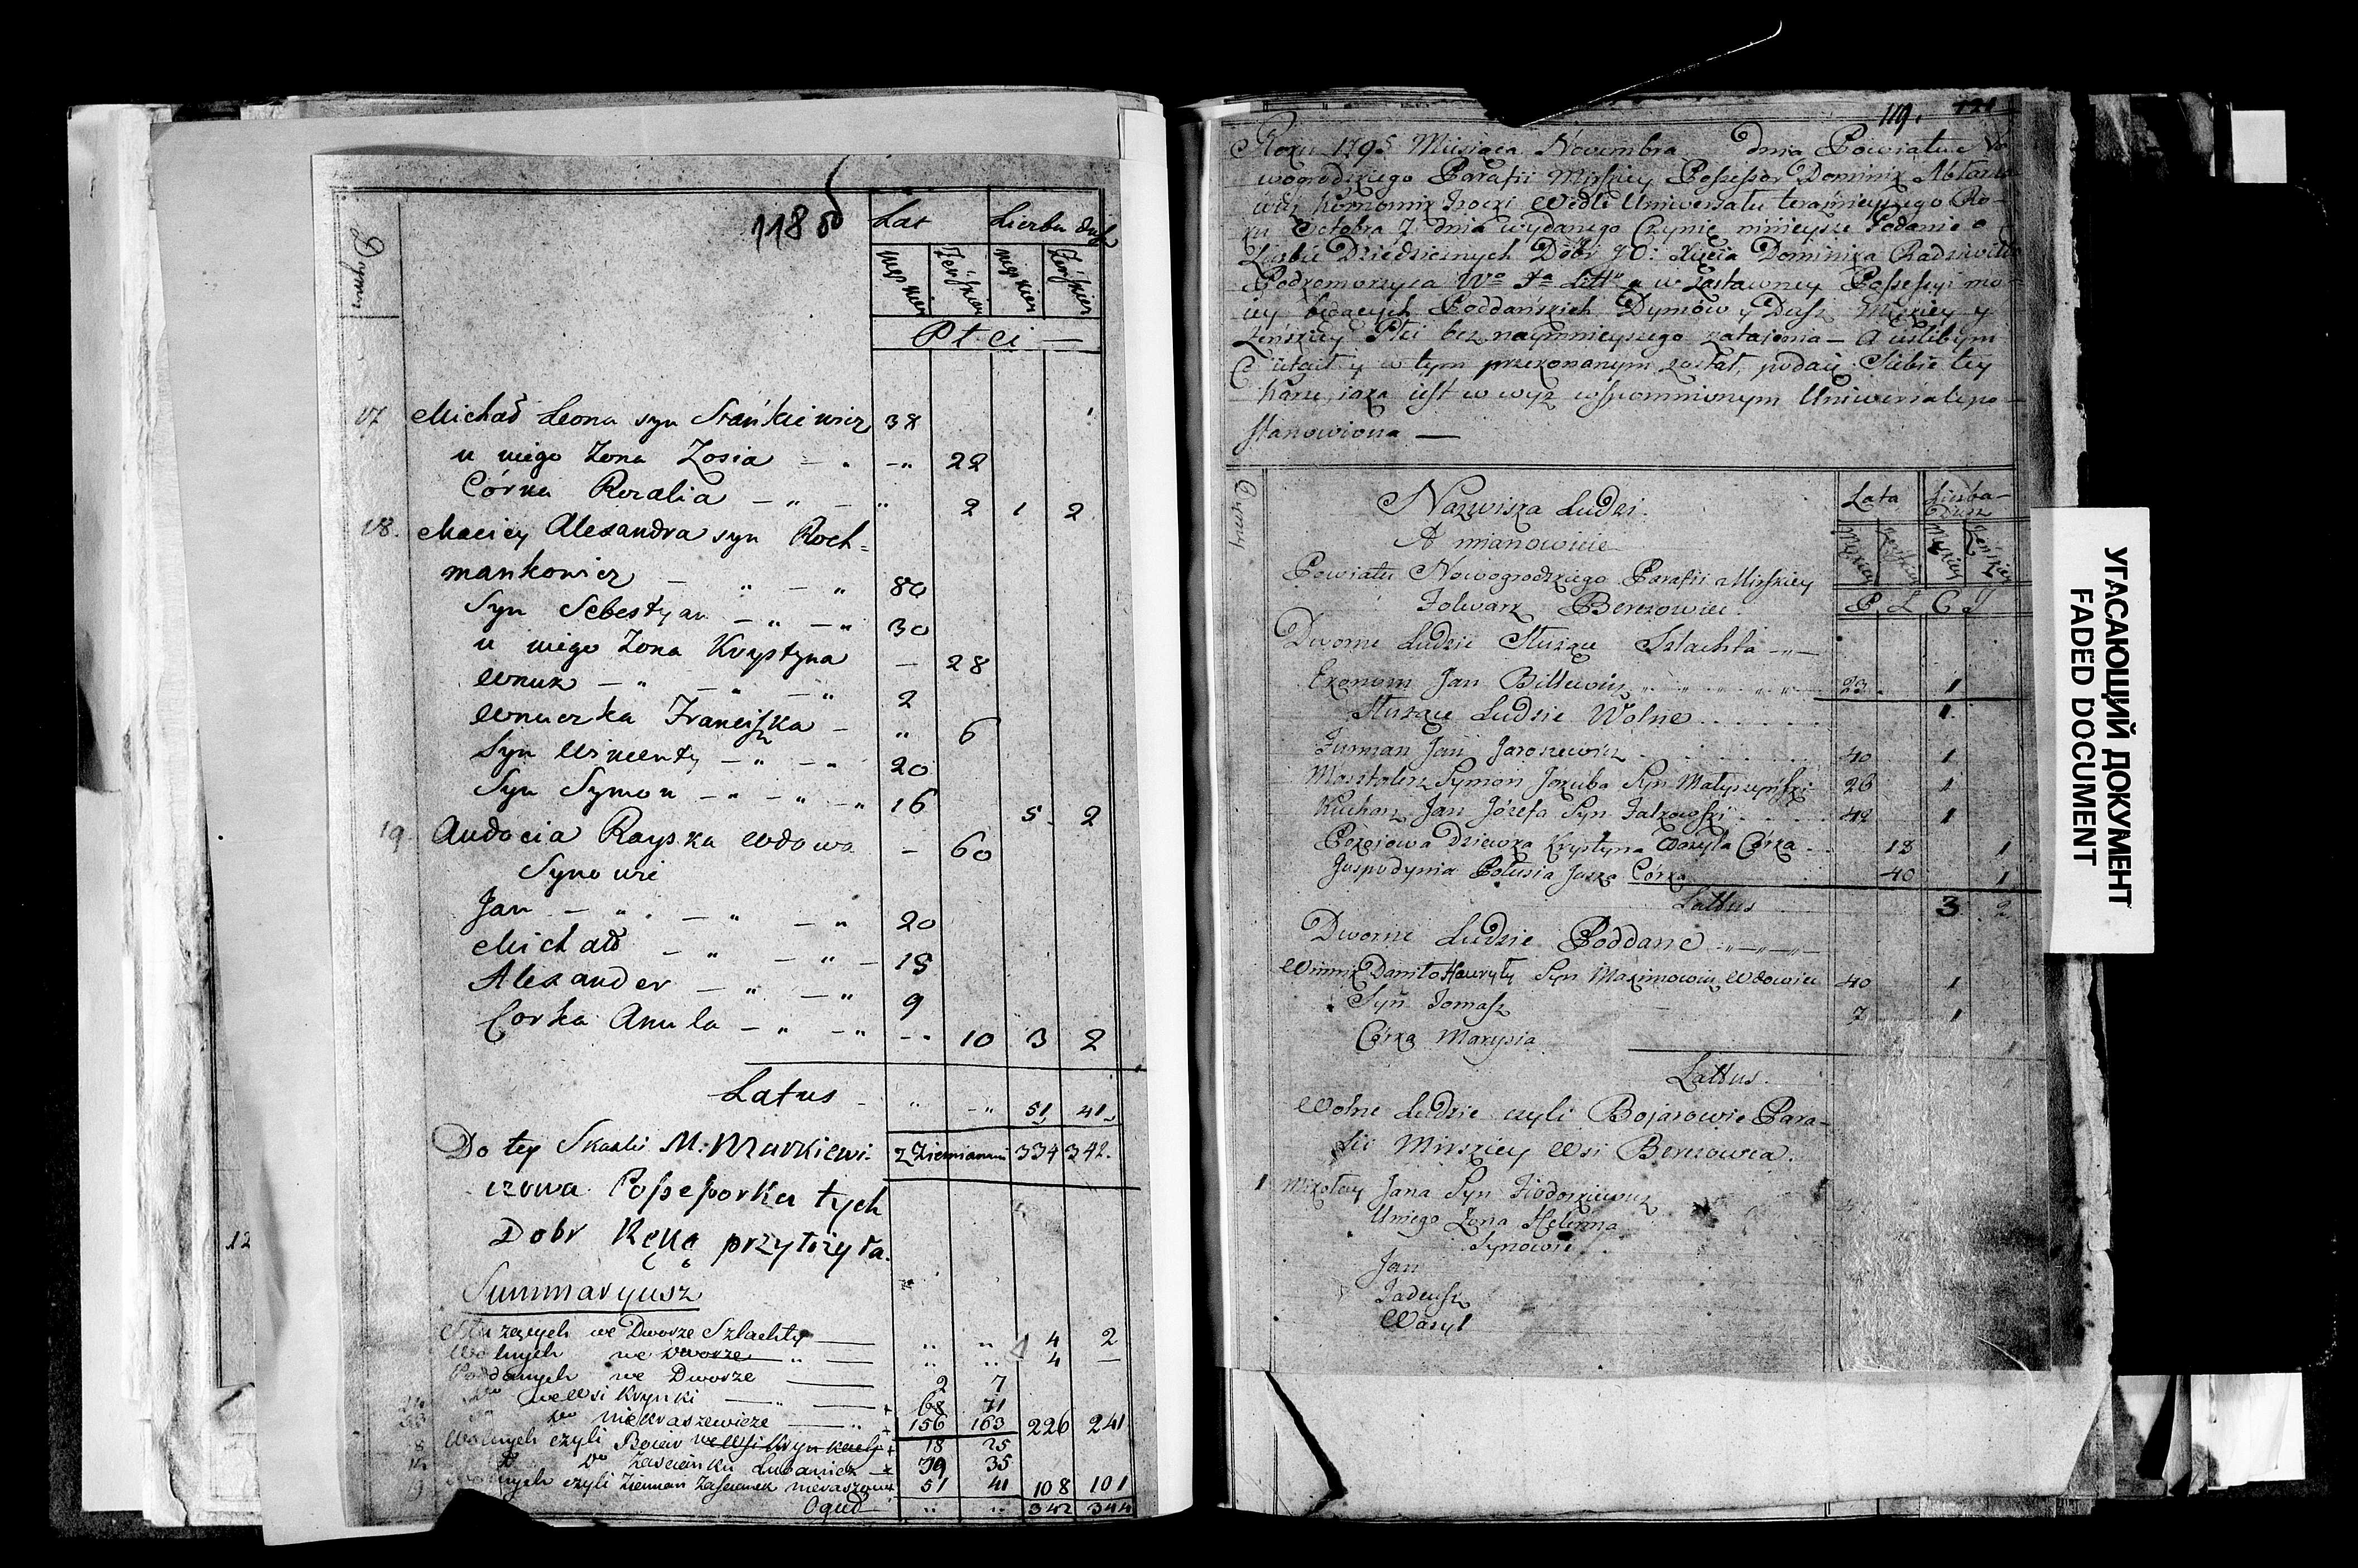 118 об
Dymow
Lat
Liczba dusz
męzkiey
Żeńskiey
męzkiey
Żeńskiey
Płci —
17 Michał Leona syn Stańkiewicz 38
u niego Zona Zosia - " 22
Córka Rozalia — " — " 2 1 2
18. Maciey Alexandra syn Roch=
mankowicz — " — " 80
Syn Sebestyan — " — " 30
u niego Zona Krystyna — 28
Wnuk — " — " — " 2
Wnuczka Franciszka — " 6
Syn Wincenty — " — " 20
Syn Symon — " — " — " 16 5. 2
19. Audocia Rayska Wdowa — 60
Synowie
Jan — " — " — " 20
Michał — " — " — 18
Alexander — " — " 9
Corka Anula — " — " - - 10 3 2
Latus " - " 51 41
Do tey Skazki M. Markiewi- z Ziemianmi 334 342.
czowa Possessorka tych
Dobr Ręką przyłożyła.
Summaryusz
Służących we Dworze Szlachty — " " 4 2
Wolnych we Dworze " — " " 4 —
Poddanych we Dworze — 2 7
we Wsi Krynki — " — 68 71
do niekraszewicze — " 156 163 226 241
Wolnych czyli Boiar we Wsi Krynkach 18 25
do Zascianku Lubanicz — 39 35
Wolnych czyli Ziemian Zascianek 51 41 108 101
Oguł " " 342 344
119. 121
Roku 1795 Miesiąca Novembra dnia Powiatu No-
wogrodzkiego Parafii Mirskiey Possessor Dominik
Komornik Trocki Wedle Uniwersału teraznieyszego Ro-
ku Octobra 7 dnia wydanego Czynię ninieysze Podanie o
Liczbie Dziedzicznych Dóbr JO: Xięcia Dominika Radziwiłła
Podkomorzyca Wo Xa Litto a w Zastawney Possessyi mo-
iey będących Poddańskich Dymów y Dusz Męzkiey y
Zeńskiey Płci bez naymnieyszego zatajenia — A ieslibym
utaił y w tym przekonanym został, podaię Siebie tey
Karze iaka iest w wyz wspomnionym Uniwersale po-
stanowiona —
Dymy
Nazwiska Ludzi.
A mianowicie
Lata
Liczba
Dusz
Męzkiey
Zeńskiey
Męzkiey
Zeńskiey
P Ł C I
Powiatu Nowogrodzkiego Parafii Mirskiey
Folwark Berezowiec.
Dworne Ludzie Służące Szlachta — " —
Ekonom Jan Billewicz 23. 1
Służące Ludzie Wolne 1.
Furman Jan Jaroszewicz 40 1
Masztalerz Symon Jakuba Syn Matyszyński 26 1
Kucharz Jan Józefa Syn Falkowski 42 1
Pokojowa Dziewka Krystyna Wasyla Córka 18 1
Gospodynia Połusia Jaska Córka 40 1
Lattus 3 2
Dworne Ludzie Poddane — " — " —
Winnik Daniło Hawryły Syn Maximowicz Wdowiec 40 1
Syn Tomasz 7 1
Córka Marysia 1
Lattus.
Wolne Ludzie czyli Bojarowie Para-
fii Mirskiey Wsi Berezowca.
1 Mikołay Jana Syn Fiodorkiewicz
Uniego Żona Helenna
Synowie
Jan
Tadeusz
Wasyl
12
УГАСАЮЩИЙ ДОКУМЕНТ
FADED DOCUMENT